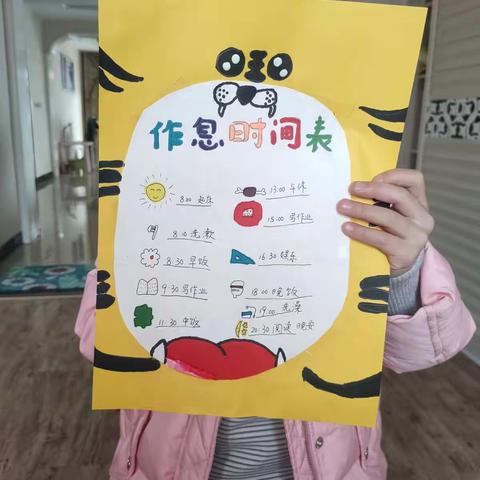 作息时间表
8:00 起床
8:10 洗漱
8:30 早饭
9:30 写作业
11:30 中饭
13:00 午休
15:00 写作业
16:30 娱乐
18:00 晚饭
19:00 洗澡
20:30 阅读 晚安